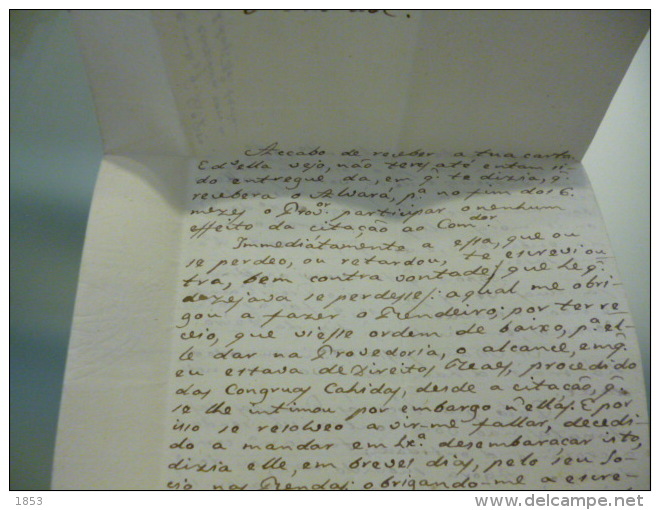 Accabo de receber a tua carta
E d'ella vejo, não teres até entam si-
do entregue da, em q̃ te dizia, q̃
recebera o Alvará, p.ª no fim dos 6.
mezes o Prov.or participar o nenhum
effeito da citação ao Com.dor
Immediátamente a essa, que ou
se perdeo, ou retardou, te escrevi ou-
tra, bem contra vontade, que he q̃
dezejava se perdesse: aqual me obri-
gou a fazer o Rendeiro; por ter re-
ceio, que viesse ordem de baixo, p.ª el-
le dar na Provedoria, o alcance, em q̃
eu estava de Direitos Reaes, procedido
das Congruas Cahidas, desde a citação, q̃
se lhe intimou por embargo n'ellas. E por
isso se resolveo a vir-me fallar, decedi-
do a mandar em Lx.ª desembaraçar isto,
dizia elle, em breves dias, pelo seu So-
cio nas Rendas: obrigando-me a escre-
1853
delcampe.net